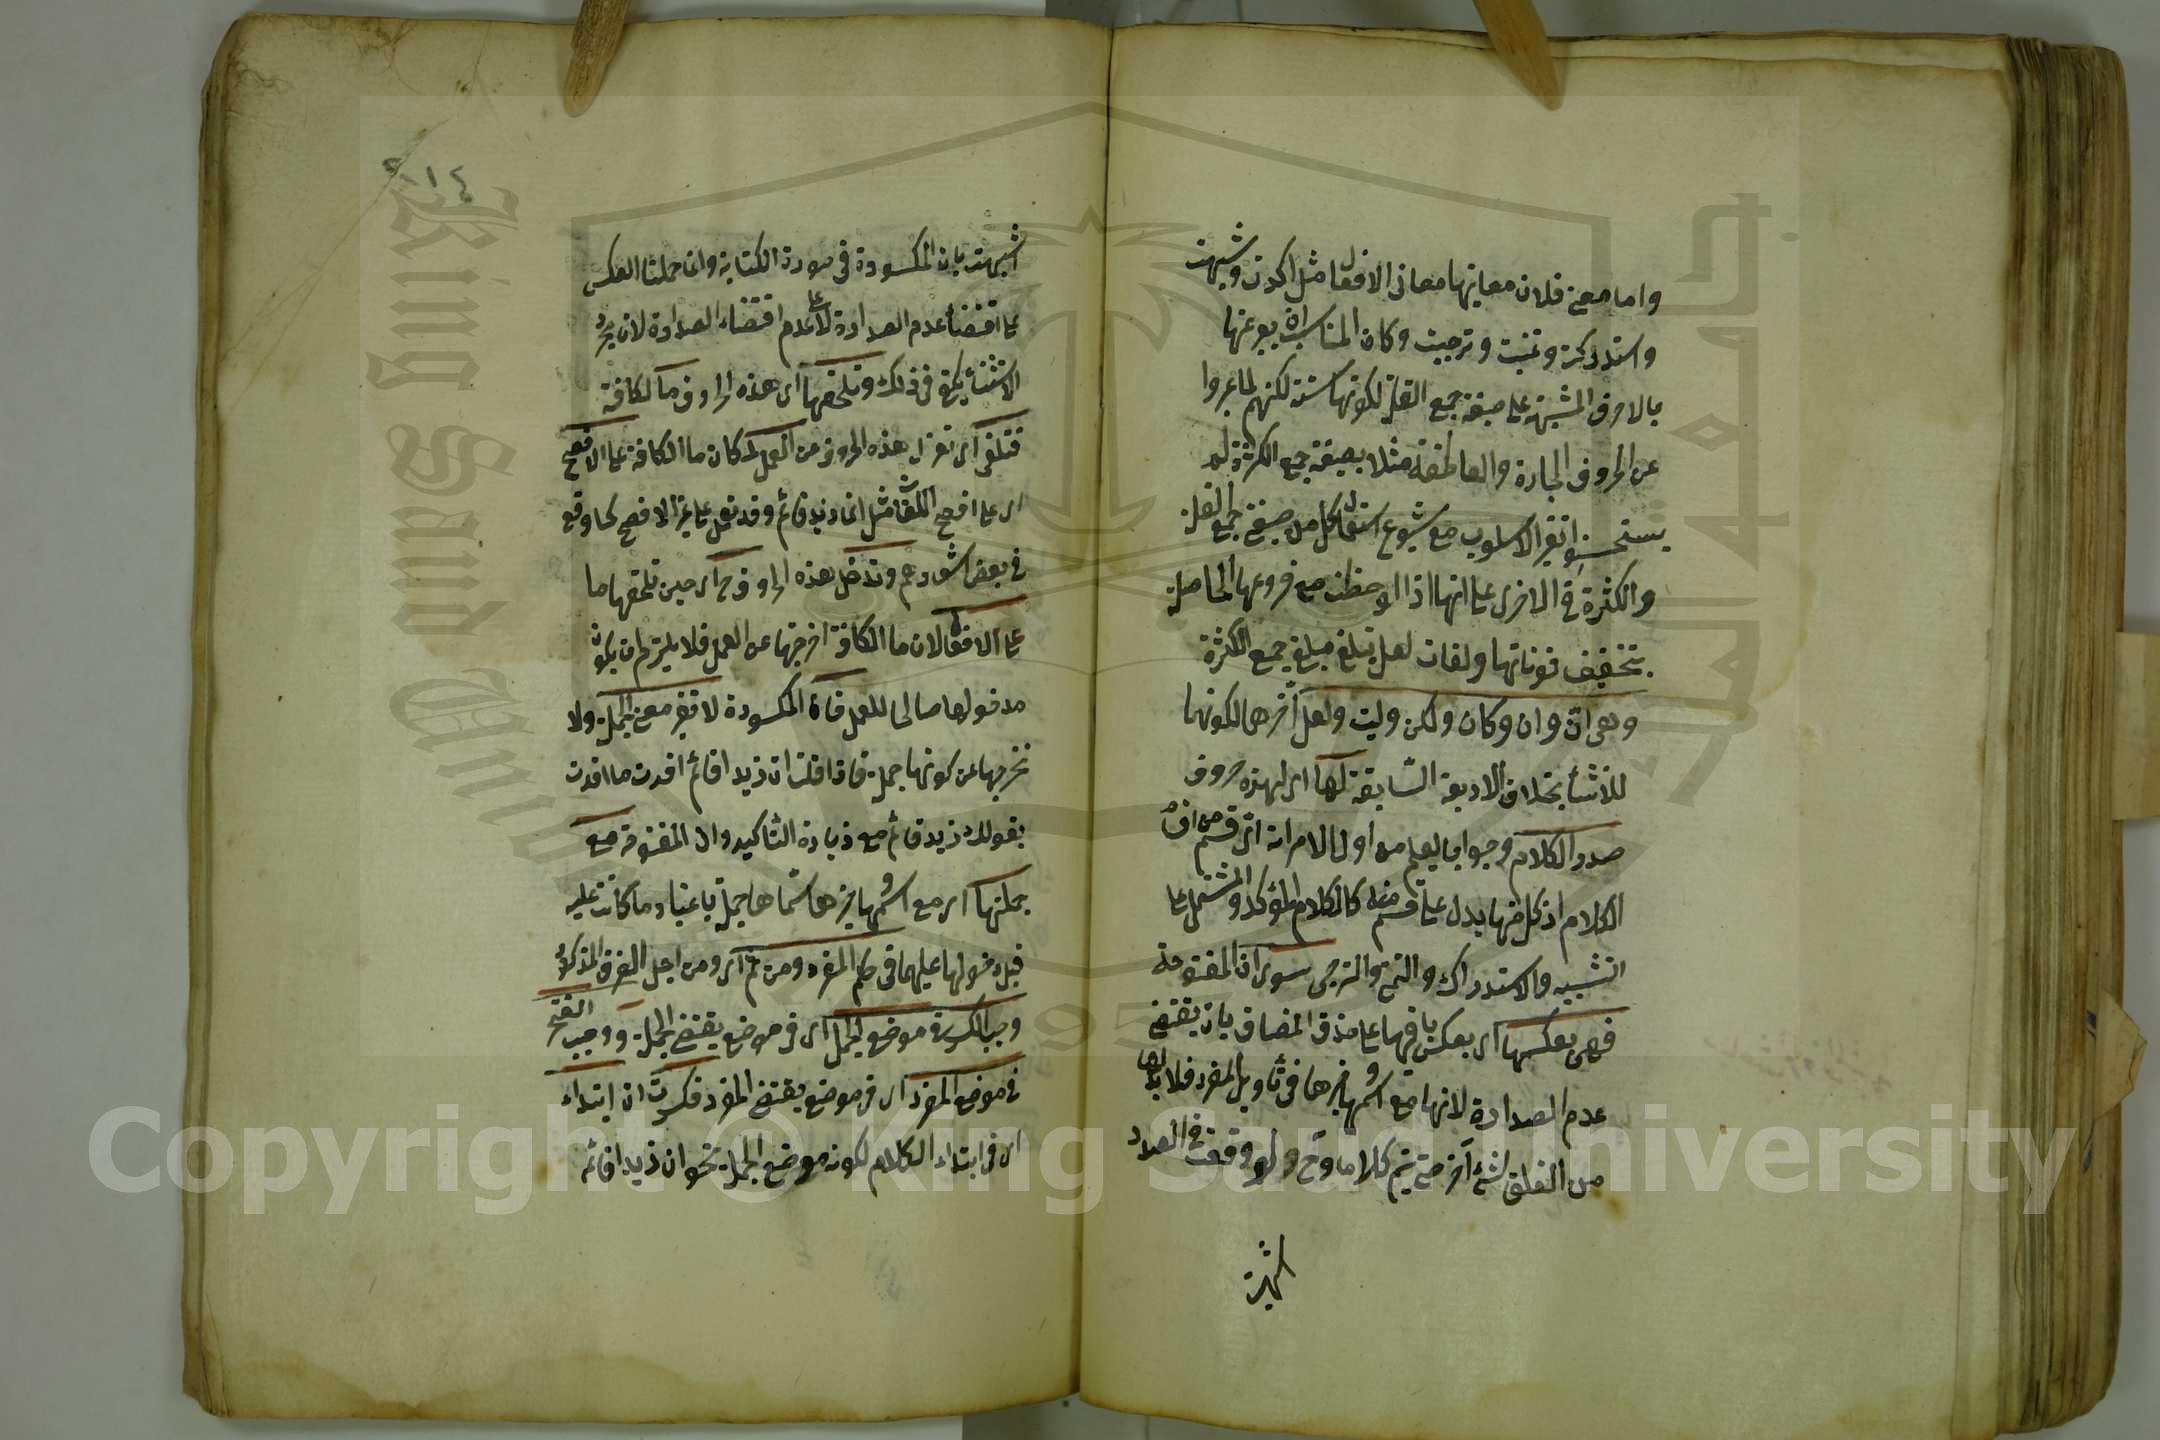 واما معنى فلان معانيها معانى الافعال مثل اكدت وشبهت
واستدركت وتمنيت وترجيت وكان المناسب ان يعبر عنها
بالاحرف المشبهة على صيغة جمع القلة لكونها ستة لكنهم لما عبروا
عن الحروف الجارة والعاطفة مثلا بصيغة جمع الكثرة لم
يستحسنوا تغير الاسلوب مع شيوع استعمال كل من صيغتى جمع القلة
والكثرة فى الاخرى على انها اذا لوحظت مع فروعها الحاصلة
بتخفيف نوناتها ولغات لعل تبلغ مبلغ جمع الكثرة
وهى انّ وان وكان ولكن وليت ولعل آخرهما لكونهما
للانشأ بخلاف الاربعة السّابقة لها اى لهذه حروف
صدر الكلام وجوبا ليعلم من اول الامر انه اىّ قسم من اقسام
الكلام اذ كل منها يدل على قسم منه كالكلام المؤكد والمشتمل على
التشبيه والاستدراك والتمنى والترجى سوى ان المفتوحة
فهى بعكسها اى بعكس باقيها على حذف المضاف بان يقتضى
عدم الصدارة لانها مع اسمها وخبرها فى تأويل المفرد فلا بد لها
من التعلق بشئ آخر حتى يتم كلاما وح لو وقعت فى الصدر
اشتبهت
٢٠١٤
اشبهت بان المكسورة فى صورة الكتابة وانما حملنا العكس
على اقتضأ عدم الصدارة لا على عدم اقتضاء الصدارة لان مجرد
الاستثنأ يكفى فى ذلك وتلحقها اى هذه الحروف ما الكافة
فتلغى اى تعزل هذه الحروف عن العمل لمكان ما الكافة على الافصح
اى على افصح اللغات مثل انما زيد قائم وقد تعمل على غير الافصح كما وقع
فى بعض اشعارهم وتدخل هذه الحروف ح اى حين تلحقها ما
على الافعال لان ما الكافة اخرجتها عن العمل فلا يلزم ان يكون
مدخولها صالحا للعمل فان المكسورة لا تغير معنى الجملة ولا
تخرجها عن كونها جملة فاذا قلت ان زيدا قائم افدت ما افدت
بقولك زيد قائم مع زيادة التاكيد وان المفتوحة مع
جملتها اى مع اسمها وخبرها سمّاها جملة باعتبار ما كانت عليه
قبل دخولها عليهما فى حكم المفرد ومن ثم اى ومن اجل الفرق المذكور
وجب الكسر فى موضع الجمل اى فى موضع يقتضى الجملة ووجب الفتح
فى موضع المفرد اى فى موضع يقتضى المفرد فكسرت ان ابتداء
اى فى ابتداء الكلام لكونه موضع الجملة نحو ان زيدا قائم
King Saud University
1957
Copyright © King Saud University